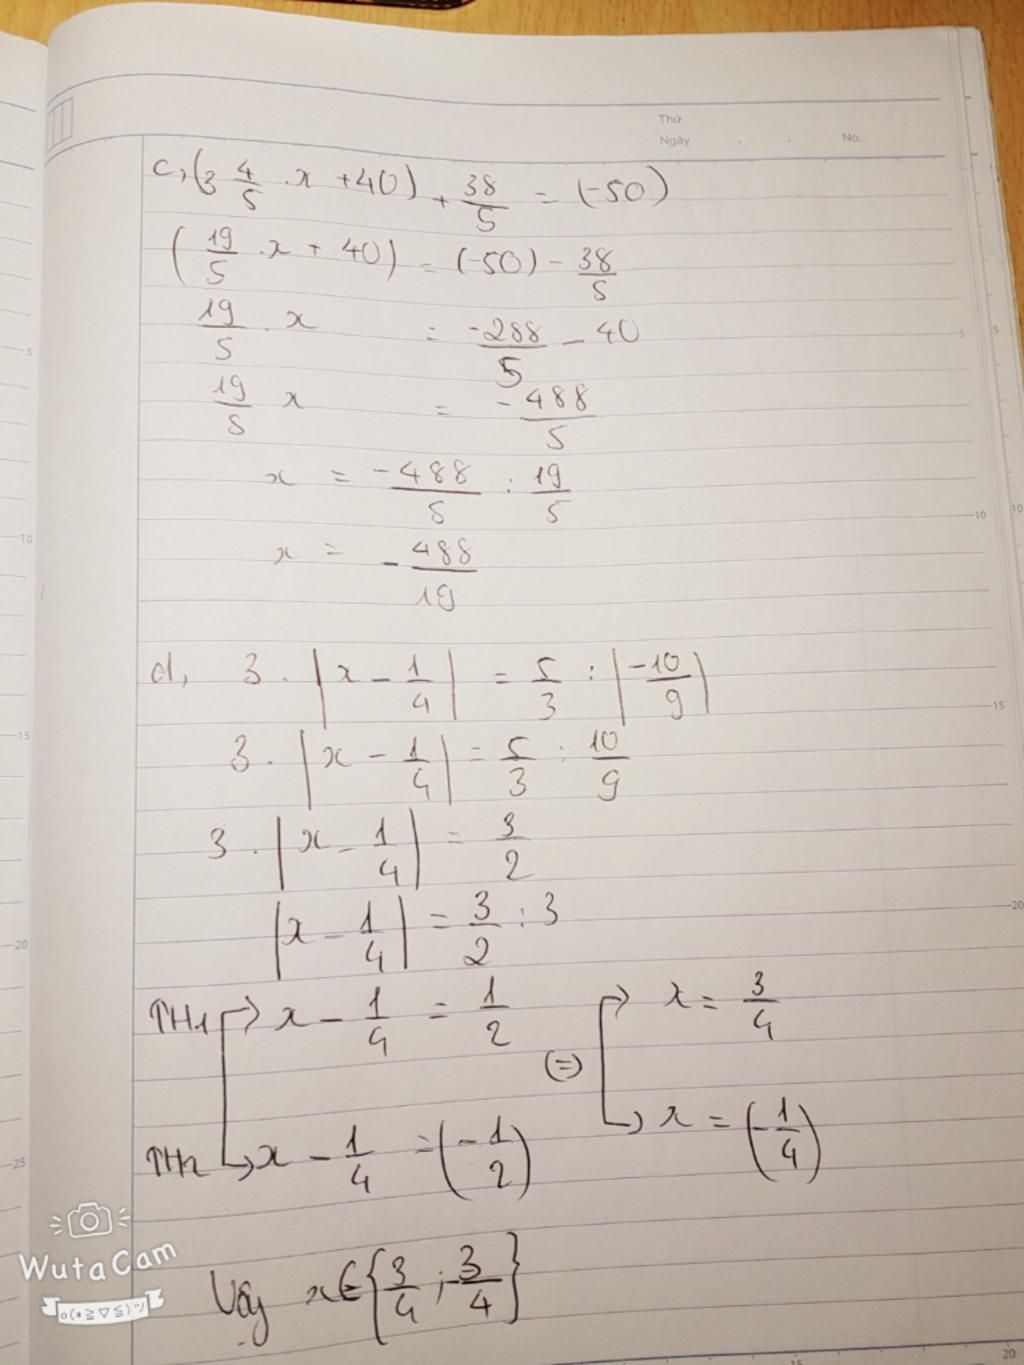 Thứ
Ngày . . No.
c, (3 4/5 . x + 40) + 38/5 = (-50)
(19/5 . x + 40) = (-50) - 38/5
19/5 . x = -288/5 - 40
19/5 x = -488/5
x = -488/5 : 19/5
x = -488/19
d, 3 . |x - 1/4| = 5/3 : |-10/9|
3 . |x - 1/4| = 5/3 : 10/9
3 . |x - 1/4| = 3/2
|x - 1/4| = 3/2 : 3
TH1 x - 1/4 = 1/2 (=) x = 3/4
TH2 x - 1/4 = (-1/2) x = (-1/4)
Vậy x ∈ {3/4 ; -3/4}
WutaCam
o(*≧▽≦)ツ
5
10
15
20
25
5
10
15
20
5
10
15
20